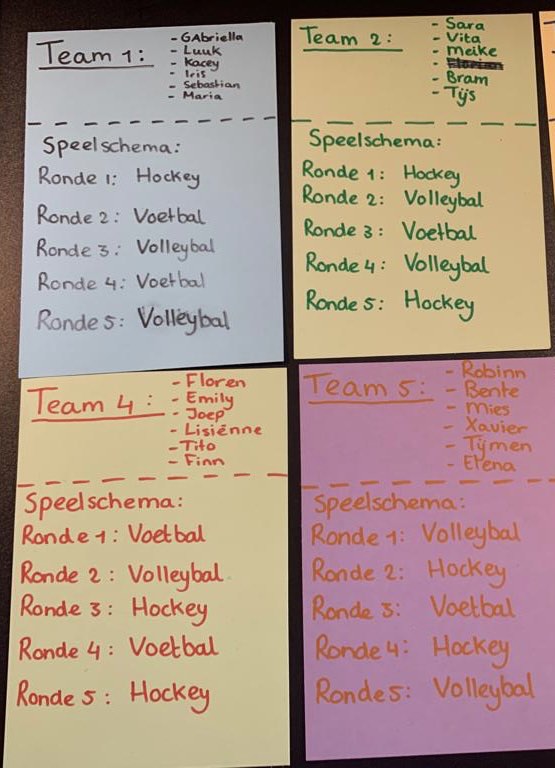 Team 1:
- GAbriella
- Luuk
- Kacey
- Iris
- Sebastian
- Maria
Speelschema:
Ronde 1: Hockey
Ronde 2: Voetbal
Ronde 3: Volleybal
Ronde 4: Voetbal
Ronde 5: Volleybal
Team 2:
- Sara
- Vita
- Meike
- Bram
- Tijs
Speelschema:
Ronde 1: Hockey
Ronde 2: Volleybal
Ronde 3: Voetbal
Ronde 4: Volleybal
Ronde 5: Hockey
Team 4:
- Floren
- Emily
- Joep
- Lisiënne
- Tito
- Finn
Speelschema:
Ronde 1: Voetbal
Ronde 2: Volleybal
Ronde 3: Hockey
Ronde 4: Voetbal
Ronde 5: Hockey
Team 5:
- Robinn
- Bente
- Mies
- Xavier
- Tijmen
- Elena
Speelschema:
Ronde 1: Volleybal
Ronde 2: Hockey
Ronde 3: Voetbal
Ronde 4: Hockey
Ronde 5: Volleybal